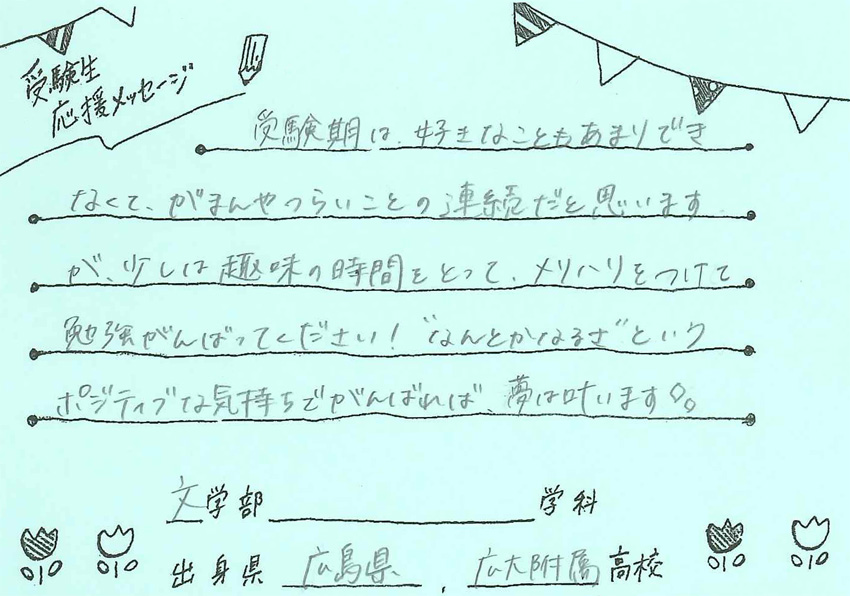 受験生
応援メッセージ
受験期は、好きなこともあまりでき
なくて、がまんやつらいことの連続だと思います
が、少しは趣味の時間をとって、メリハリをつけて
勉強がんばってください！“なんとかなるさ”という
ポジティブな気持ちでがんばれば、夢は叶います◇。
文学部 学科
出身県 広島県 , 広大附属高校